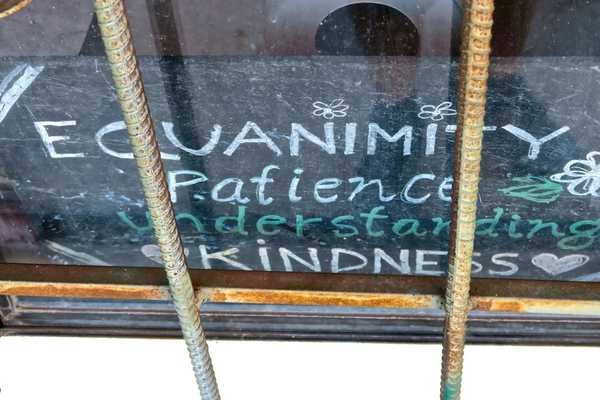 EQUANIMITY
Patience
understanding
KINDNESS